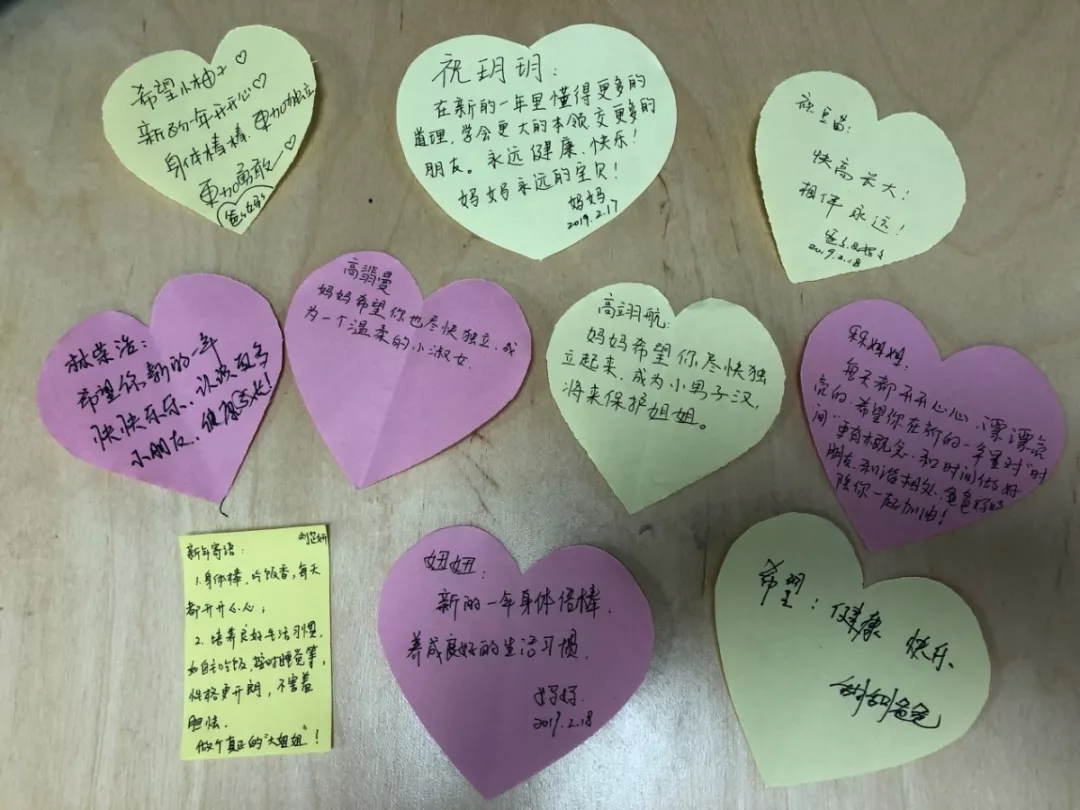 希望小柚子
新的一年开开心心
身体棒棒,更加独立
更加勇敢
爸爸妈妈
祝玥玥:
在新的一年里懂得更多的
道理,学会更大的本领交更多的
朋友。永远健康、快乐!
妈妈永远的宝贝!
妈妈
2019.2.17
祝豆苗:
快高长大!
相伴永远!
2019.2.18
林荣浩:
希望你新的一年
快快乐乐、认识更多
小朋友、健康成长!
高翡曼
妈妈希望你也尽快独立,成
为一个温柔的小淑女.
高翊航:
妈妈希望你尽快独
立起来,成为小男子汉,
将来保护姐姐。
姐姐:
每天都开开心心、漂漂亮
亮的、希望你在新的一年里对"时
间"更有概念、和时间做好
朋友、和谐相处、爸爸妈妈
陪你一起加油!
新年寄语:
1.身体棒、吃饭香,每天
都开开心心;
2.培养良好生活习惯,
如自己吃饭,按时睡觉等,
性格更开朗,不害羞
胆怯.
做个真正的"大姐姐"!
妞妞:
新的一年身体倍棒.
养成良好的生活习惯.
妈妈.
2019.2.18
希望:健康 快乐
甜甜爸爸